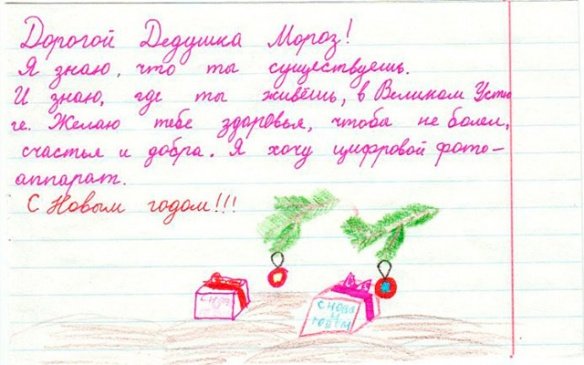 Дорогой Дедушка Мороз!
Я знаю, что ты существуешь.
И знаю, где ты живёшь, в Великом Устю
ге. Желаю тебе здоровья, чтоба не болел,
счастья и добра. Я хочу цифровой фото-
аппарат.
С Новым годом!!!
С Новы
м
годом